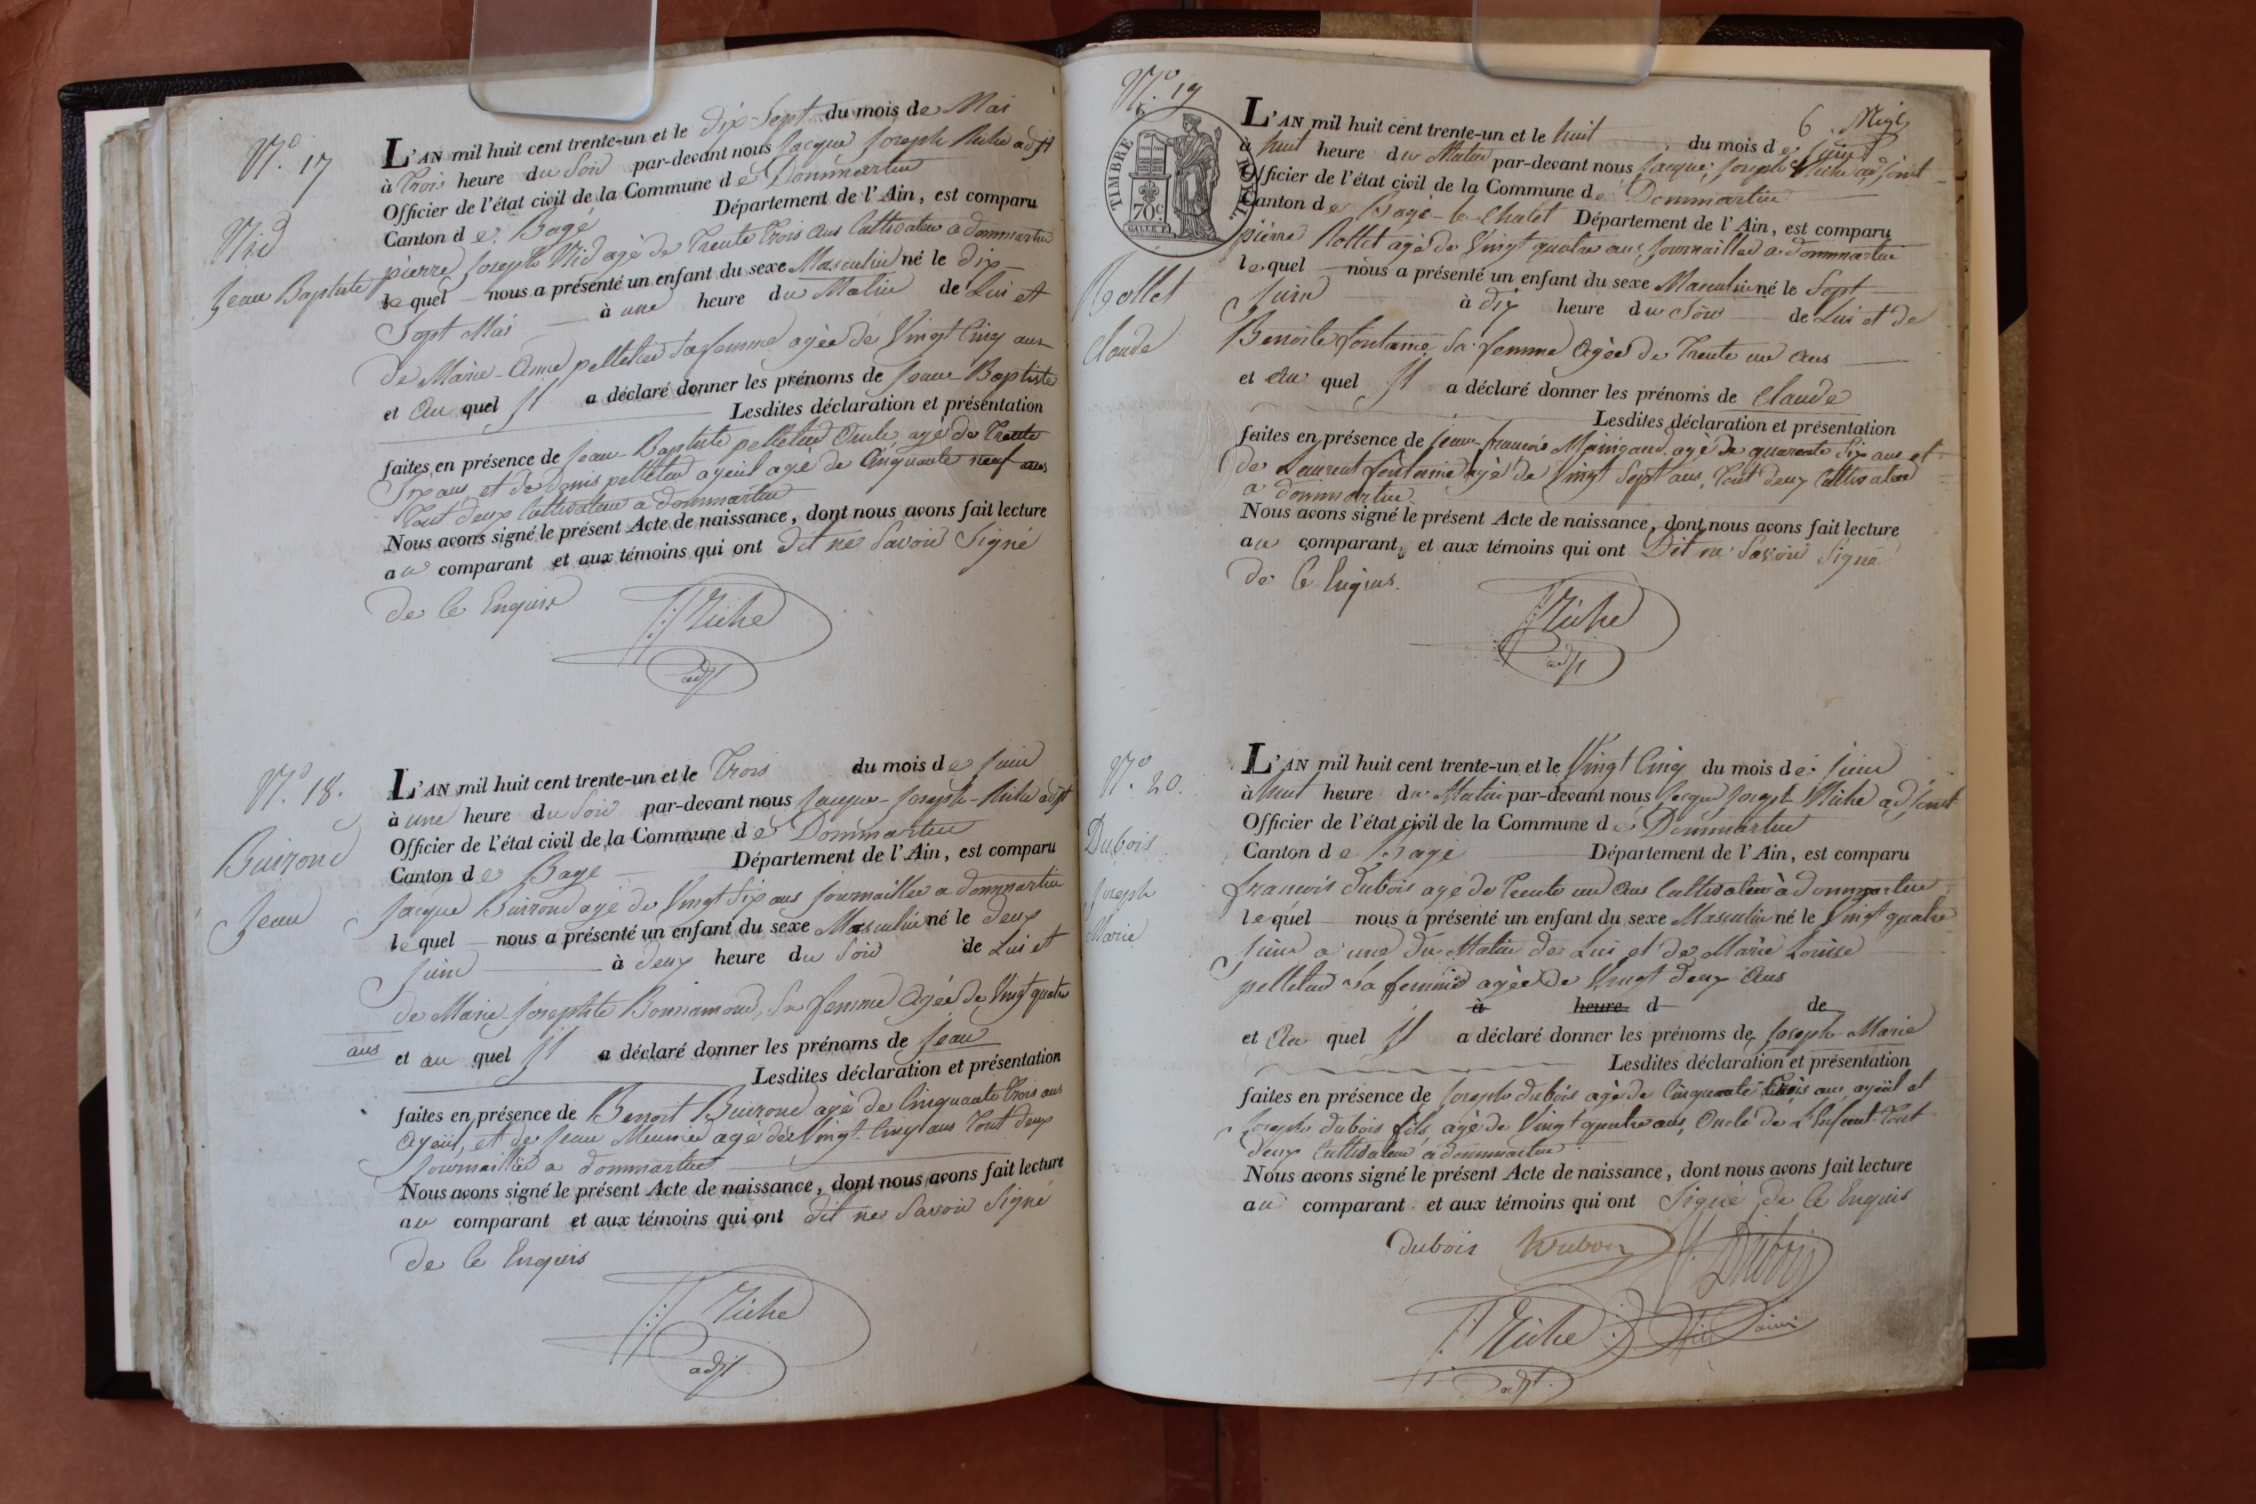 N.° 17
Nid
Jean Baptiste
L'AN mil huit cent trente-un et le dix-Sept du mois de Mai
à trois heure du Soir par-devant nous Jacque Joseph Niche adjt
Officier de l'état civil de la Commune de Dommartin
Canton de Bagé Département de l'Ain, est comparu
pierre Joseph Nid agé de Trente trois ans Cultivateur a dommartin
lequel nous a présenté un enfant du sexe Masculin né le dix
Sept Mai à une heure du Matin de Lui et
de Marie-Anne pelletier sa femme agée de Vingt Cinq ans
et au quel Il a déclaré donner les prénoms de Jean Baptiste
Lesdites déclaration et présentation
faites en présence de Jean-Baptiste pelletier Oncle agé de Trente
Six ans et de denis pelletier ayeul agé de Cinquante neuf ans
tout deux Cultivateur a dommartin
Nous avons signé le présent Acte de naissance, dont nous avons fait lecture
au comparant et aux témoins qui ont dit ne Savoir Signé
de ce Enquis
Niche
adjt
N.° 18.
Buiron
Jean
L'AN mil huit cent trente-un et le Trois du mois de Juin
à une heure du Soir par-devant nous Jacque-Joseph-Niche adjt
Officier de l'état civil de la Commune de Dommartin
Canton de Bagé Département de l'Ain, est comparu
Jacque Buiron agé de Vingt Six ans Journaillier a dommartin
lequel nous a présenté un enfant du sexe Masculin né le deux
Juin à deux heure du Soir de Lui et
de Marie Josephte Bonnamour, Sa femme Agée de Vingt quatre
ans et au quel Il a déclaré donner les prénoms de Jean
Lesdites déclaration et présentation
faites en présence de Benoit Buiron agé de Cinquante Trois ans
Ayeul, et de Jean Meunier agé de Vingt-Cinq ans Tout deux
Journaillier a dommartin
Nous avons signé le présent Acte de naissance, dont nous avons fait lecture
au comparant et aux témoins qui ont dit ne Savoir Signé
de ce Enquis
Niche
adjt
N.° 19
TIMBRE ROYAL
70c
6
Rollet
Claude
L'AN mil huit cent trente-un et le huit du mois de Juin
à huit heure du Matin par-devant nous Jacque Joseph Niche adjoint
Officier de l'état civil de la Commune de Dommartin
Canton de Bagé-le-Chatel Département de l'Ain, est comparu
pierre Rollet agé de Vingt quatre ans, Journaillier a dommartin
lequel nous a présenté un enfant du sexe Masculin né le Sept
Juin à dix heure du Soir de Lui et de
Benoite fontaine Sa femme Agée de Trente un ans
et au quel Il a déclaré donner les prénoms de Claude
Lesdites déclaration et présentation
faites en présence de Jean-francois agé de quarante Six ans et
de Laurent fontaine agé de Vingt Sept ans, Tout deux Cultivateur
a dommartin
Nous avons signé le présent Acte de naissance, dont nous avons fait lecture
au comparant, et aux témoins qui ont Dit ne Savoir Signé
de ce Enquis.
Niche
adjt
N.° 20.
Dubois
Joseph
Marie
L'AN mil huit cent trente-un et le Vingt Cinq du mois de Juin
à huit heure du Matin par-devant nous Jacque Joseph Niche adjoint
Officier de l'état civil de la Commune de Dommartin
Canton de Bagé Département de l'Ain, est comparu
francois Dubois agé de Trente un ans Cultivateur à dommartin
lequel nous a présenté un enfant du sexe Masculin né le Vingt quatre
Juin a une du Matin de Lui et de Marie Louise
pelletier sa femme agée de Vingt deux Ans
à heure d de
et Au quel Il a déclaré donner les prénoms de Joseph Marie
Lesdites déclaration et présentation
faites en présence de Joseph dubois agé de Cinquante Trois ans ayeul et
Joseph dubois fils, agé de Vingt quatre ans, Oncle de L'Enfant Tout
deux Cultivateur a dommartin
Nous avons signé le présent Acte de naissance, dont nous avons fait lecture
au comparant et aux témoins qui ont Signé de ce Enquis
dubois Dubois J. Dubois
Niche
adjt